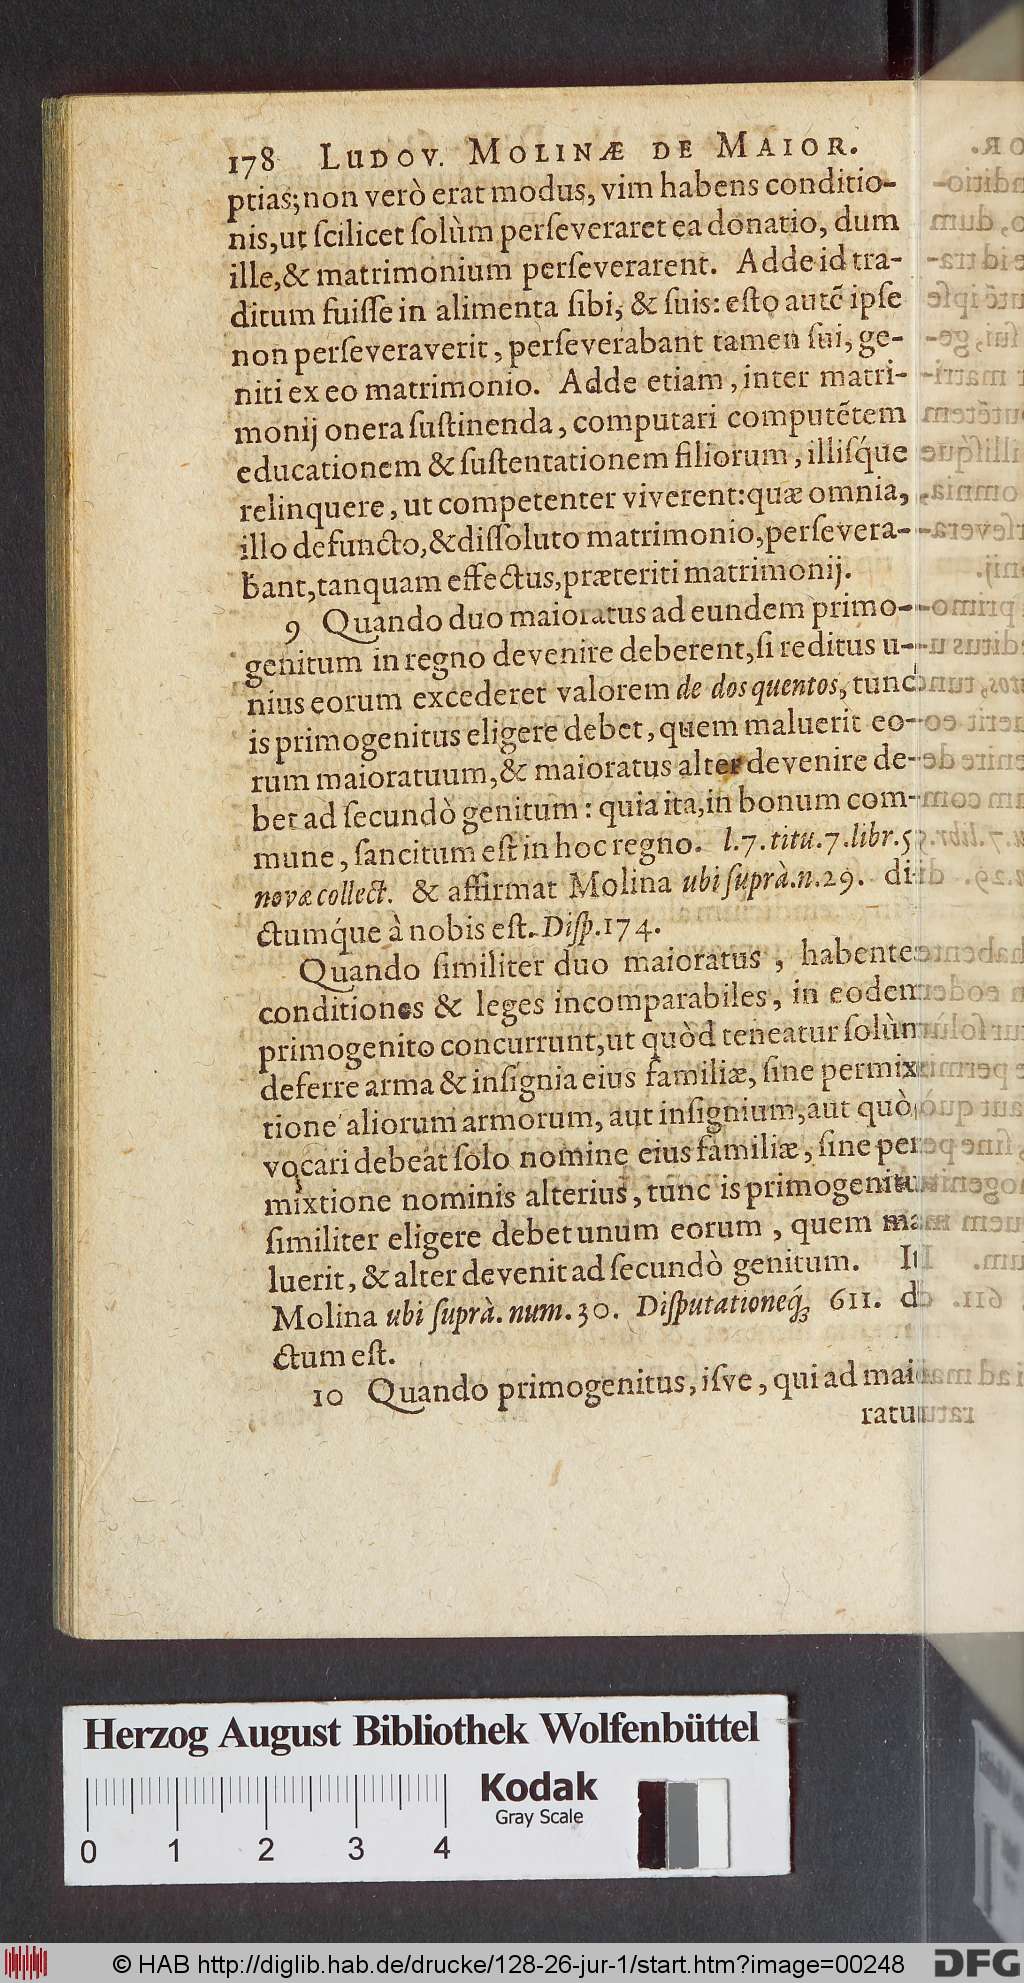 178 LUDOV. MOLINÆ DE MAIOR.
ptias; non verò erat modus, vim habens conditio-
nis, ut ſcilicet ſolùm perſeveraret ea donatio, dum
ille, & matrimonium perſeverarent. Adde id tra-
ditum fuiſſe in alimenta ſibi, & ſuis: eſto autē ipſe
non perſeveraverit, perſeverabant tamen ſui, ge-
niti ex eo matrimonio. Adde etiam, inter matri-
monij onera ſuſtinenda, computari computētem
educationem & ſuſtentationem filiorum, illiſq́ue
relinquere, ut competenter viverent: quæ omnia,
illo defuncto, & diſſoluto matrimonio, perſevera-
bant, tanquam effectus, præteriti matrimonij.
9 Quando duo maioratus ad eundem primo-
genitum in regno devenire deberent, ſi reditus u-
nius eorum excederet valorem de dos quentos, tunc
is primogenitus eligere debet, quem maluerit eo-
rum maioratuum, & maioratus alter devenire de-
bet ad ſecundò genitum: quia ita, in bonum com-
mune, ſancitum eſt in hoc regno. l.7. titu.7. libr.5
novæ collect. & affirmat Molina ubi ſuprà.n.29. di-
ctumq́ue à nobis eſt. Diſp.174.
Quando ſimiliter duo maioratus, habente
conditiones & leges incomparabiles, in eodem
primogenito concurrunt, ut quòd teneatur ſolùm
deferre arma & inſignia eius familiæ, ſine permix
tione aliorum armorum, aut inſignium, aut quò
vocari debeat ſolo nomine eius familiæ, ſine per
mixtione nominis alterius, tunc is primogenitu
ſimiliter eligere debet unum eorum, quem ma
luerit, & alter devenit ad ſecundò genitum. It
Molina ubi ſuprà. num. 30. Diſputationeq́; 611. d
ctum eſt.
10 Quando primogenitus, iſve, qui ad mai
ratu
Herzog August Bibliothek Wolfenbüttel
Kodak
Gray Scale
0 1 2 3 4
© HAB http://diglib.hab.de/drucke/128-26-jur-1/start.htm?image=00248
DFG